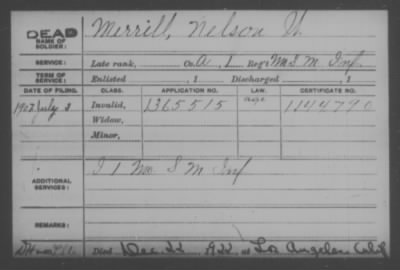 DEAD Merrill, Nelson W.
NAME OF SOLDIER:
SERVICE: Late rank, Co. A, 1 Reg't Mo S M Inf.
TERM OF SERVICE: Enlisted , 1 Discharged , 1
DATE OF FILING. CLASS. APPLICATION NO. LAW. CERTIFICATE NO.
1907 July 3 Invalid, 1365515 1144790
Widow,
Minor,
ADDITIONAL SERVICES: I 1 Mo. S M Inf
REMARKS:
Died Dec. 22 1922 at Los Angeles Calif